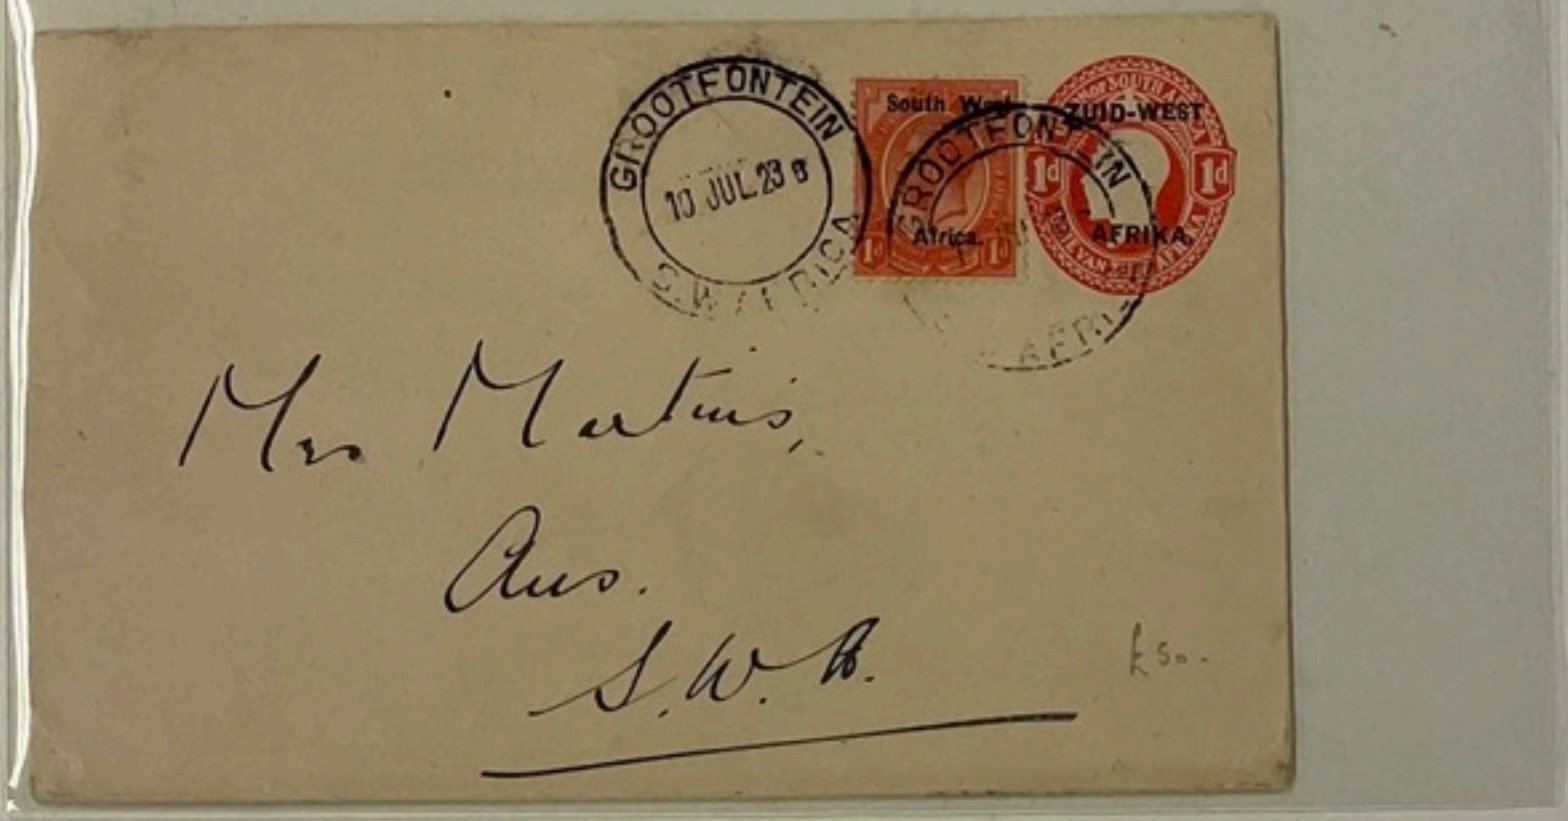 GROOTFONTEIN
10 JUL 23
S.W. AFRICA
South West
Africa.
1d 1d
GROOTFONTEIN
AFRI
ZUID-WEST
AFRIKA.
1d 1d
Mrs Martins,
Aus.
S.W.A.
£50.-